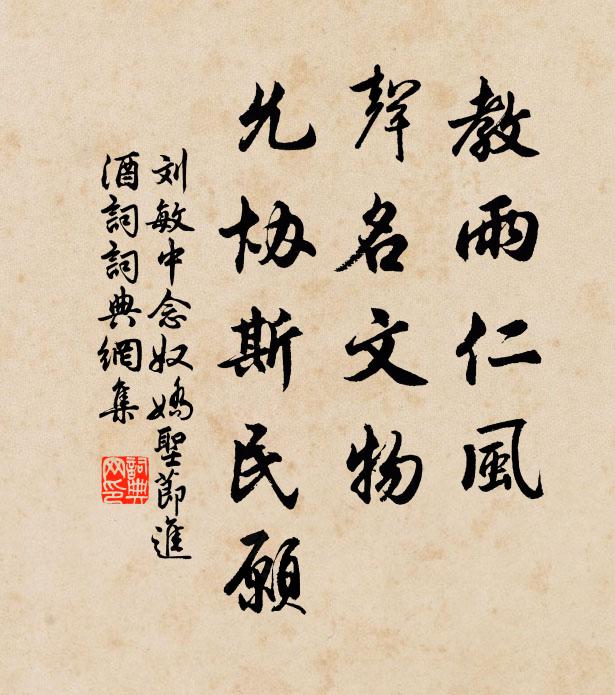 教雨仁風
聲名文物
允協斯民願
刘敏中念奴嬌聖節進
酒詞詞典網集
詞典
网印